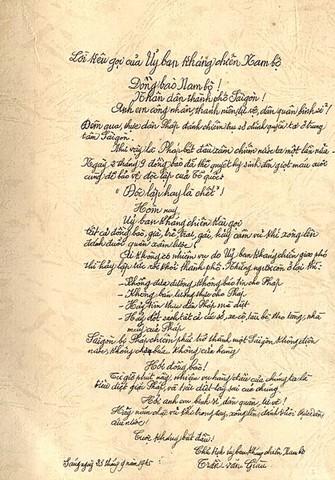 Lời kêu gọi của Uỷ ban kháng chiến Nam bộ
Đồng bào Nam bộ!
Nhân dân thành phố Saigon!
Anh em công nhân, thanh niên, tự vệ, dân quân, binh sĩ!
Đêm qua, thực dân Pháp đánh chiếm trụ sở chính quyền ta ở trung
tâm Saigon.
Như vậy là Pháp bắt đầu xâm chiếm nước ta một lần nữa.
Ngày 2 tháng 9 đồng bào đã thề quyết hy sinh đến giọt máu cuối
cùng để bảo vệ độc lập của Tổ quốc:
"Độc lập hay là chết"!
Hôm nay,
Uỷ ban kháng chiến kêu gọi:
tất cả đồng bào, già, trẻ, trai, gái, hãy cầm vũ khí xông lên
đánh đuổi quân xâm lược!
Ai không có nhiệm vụ do Uỷ ban kháng chiến giao phó
thì hãy lập tức ra khỏi thành phố. Những người còn ở lại thì:
- Không làm việc, không đi lính cho Pháp
- Không
- Không bán lương thực cho Pháp
- Hãy tìm thực dân Pháp mà diệt
- Hãy đốt sạch tất cả các sở, xe cộ, tàu bè, kho tàng, nhà
máy của Pháp
Saigon bị Pháp chiếm phải trở thành một Saigon không điện
nước, không chợ búa, không cửa hàng
Hỡi đồng bào!
Từ giờ phút này, nhiệm vụ hàng đầu của chúng ta là
tiêu diệt giặc Pháp và tiêu diệt tay sai của chúng.
Hỡi anh em binh sĩ, dân quân, tự vệ!
Hãy nắm chặt vũ khí trong tay, xông lên đánh đuổi thực dân
cứu nước!
Cuộc kháng chiến bắt đầu!
Sáng ngày 23 tháng 9 năm 1945
Chủ tịch Uỷ ban kháng chiến Nam bộ
Trần Văn Giàu